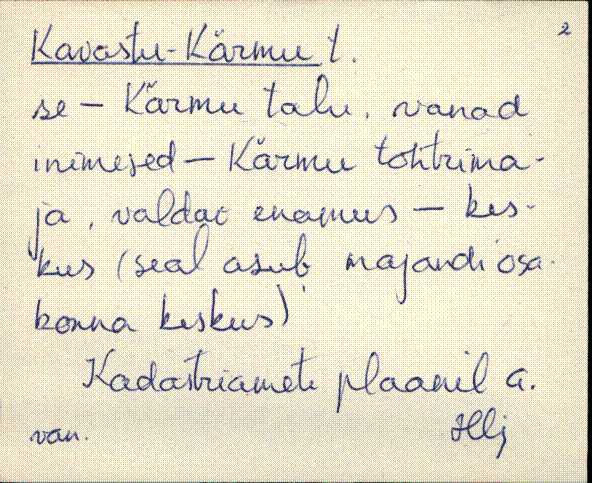 2
Kavastu-Kärmu t.
se – Kärmu talu, vanad
inimesed – Kärmu tohtrima-
ja, valdav enamus – kes-
kus (seal asub majandi osa-
konna keskus)
Kadastriameti plaanil a.
van.